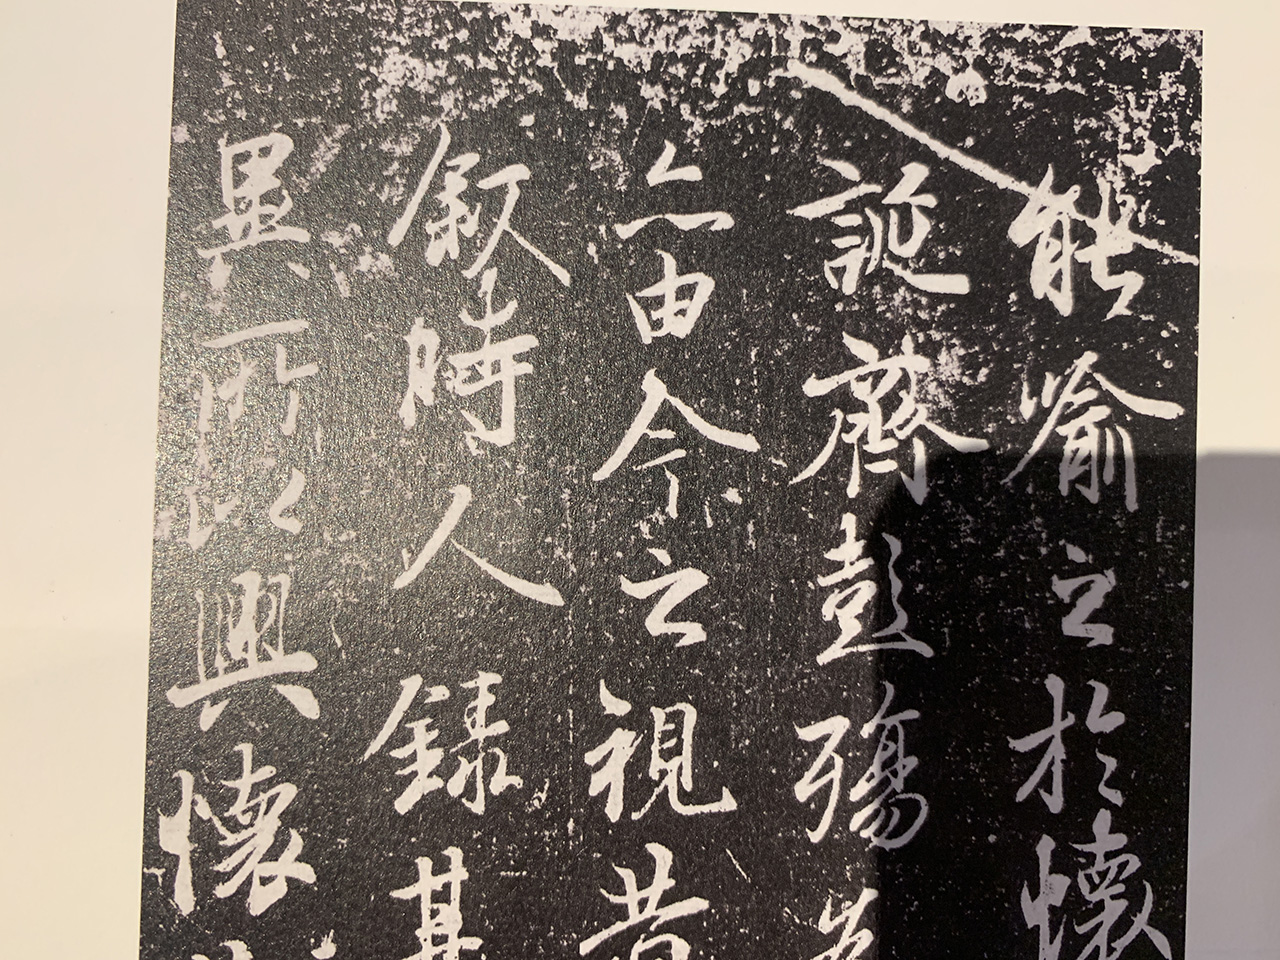 能喻之於懷
誕齊彭殤為
亦由今之視昔
叙時人録其
異所以興懷